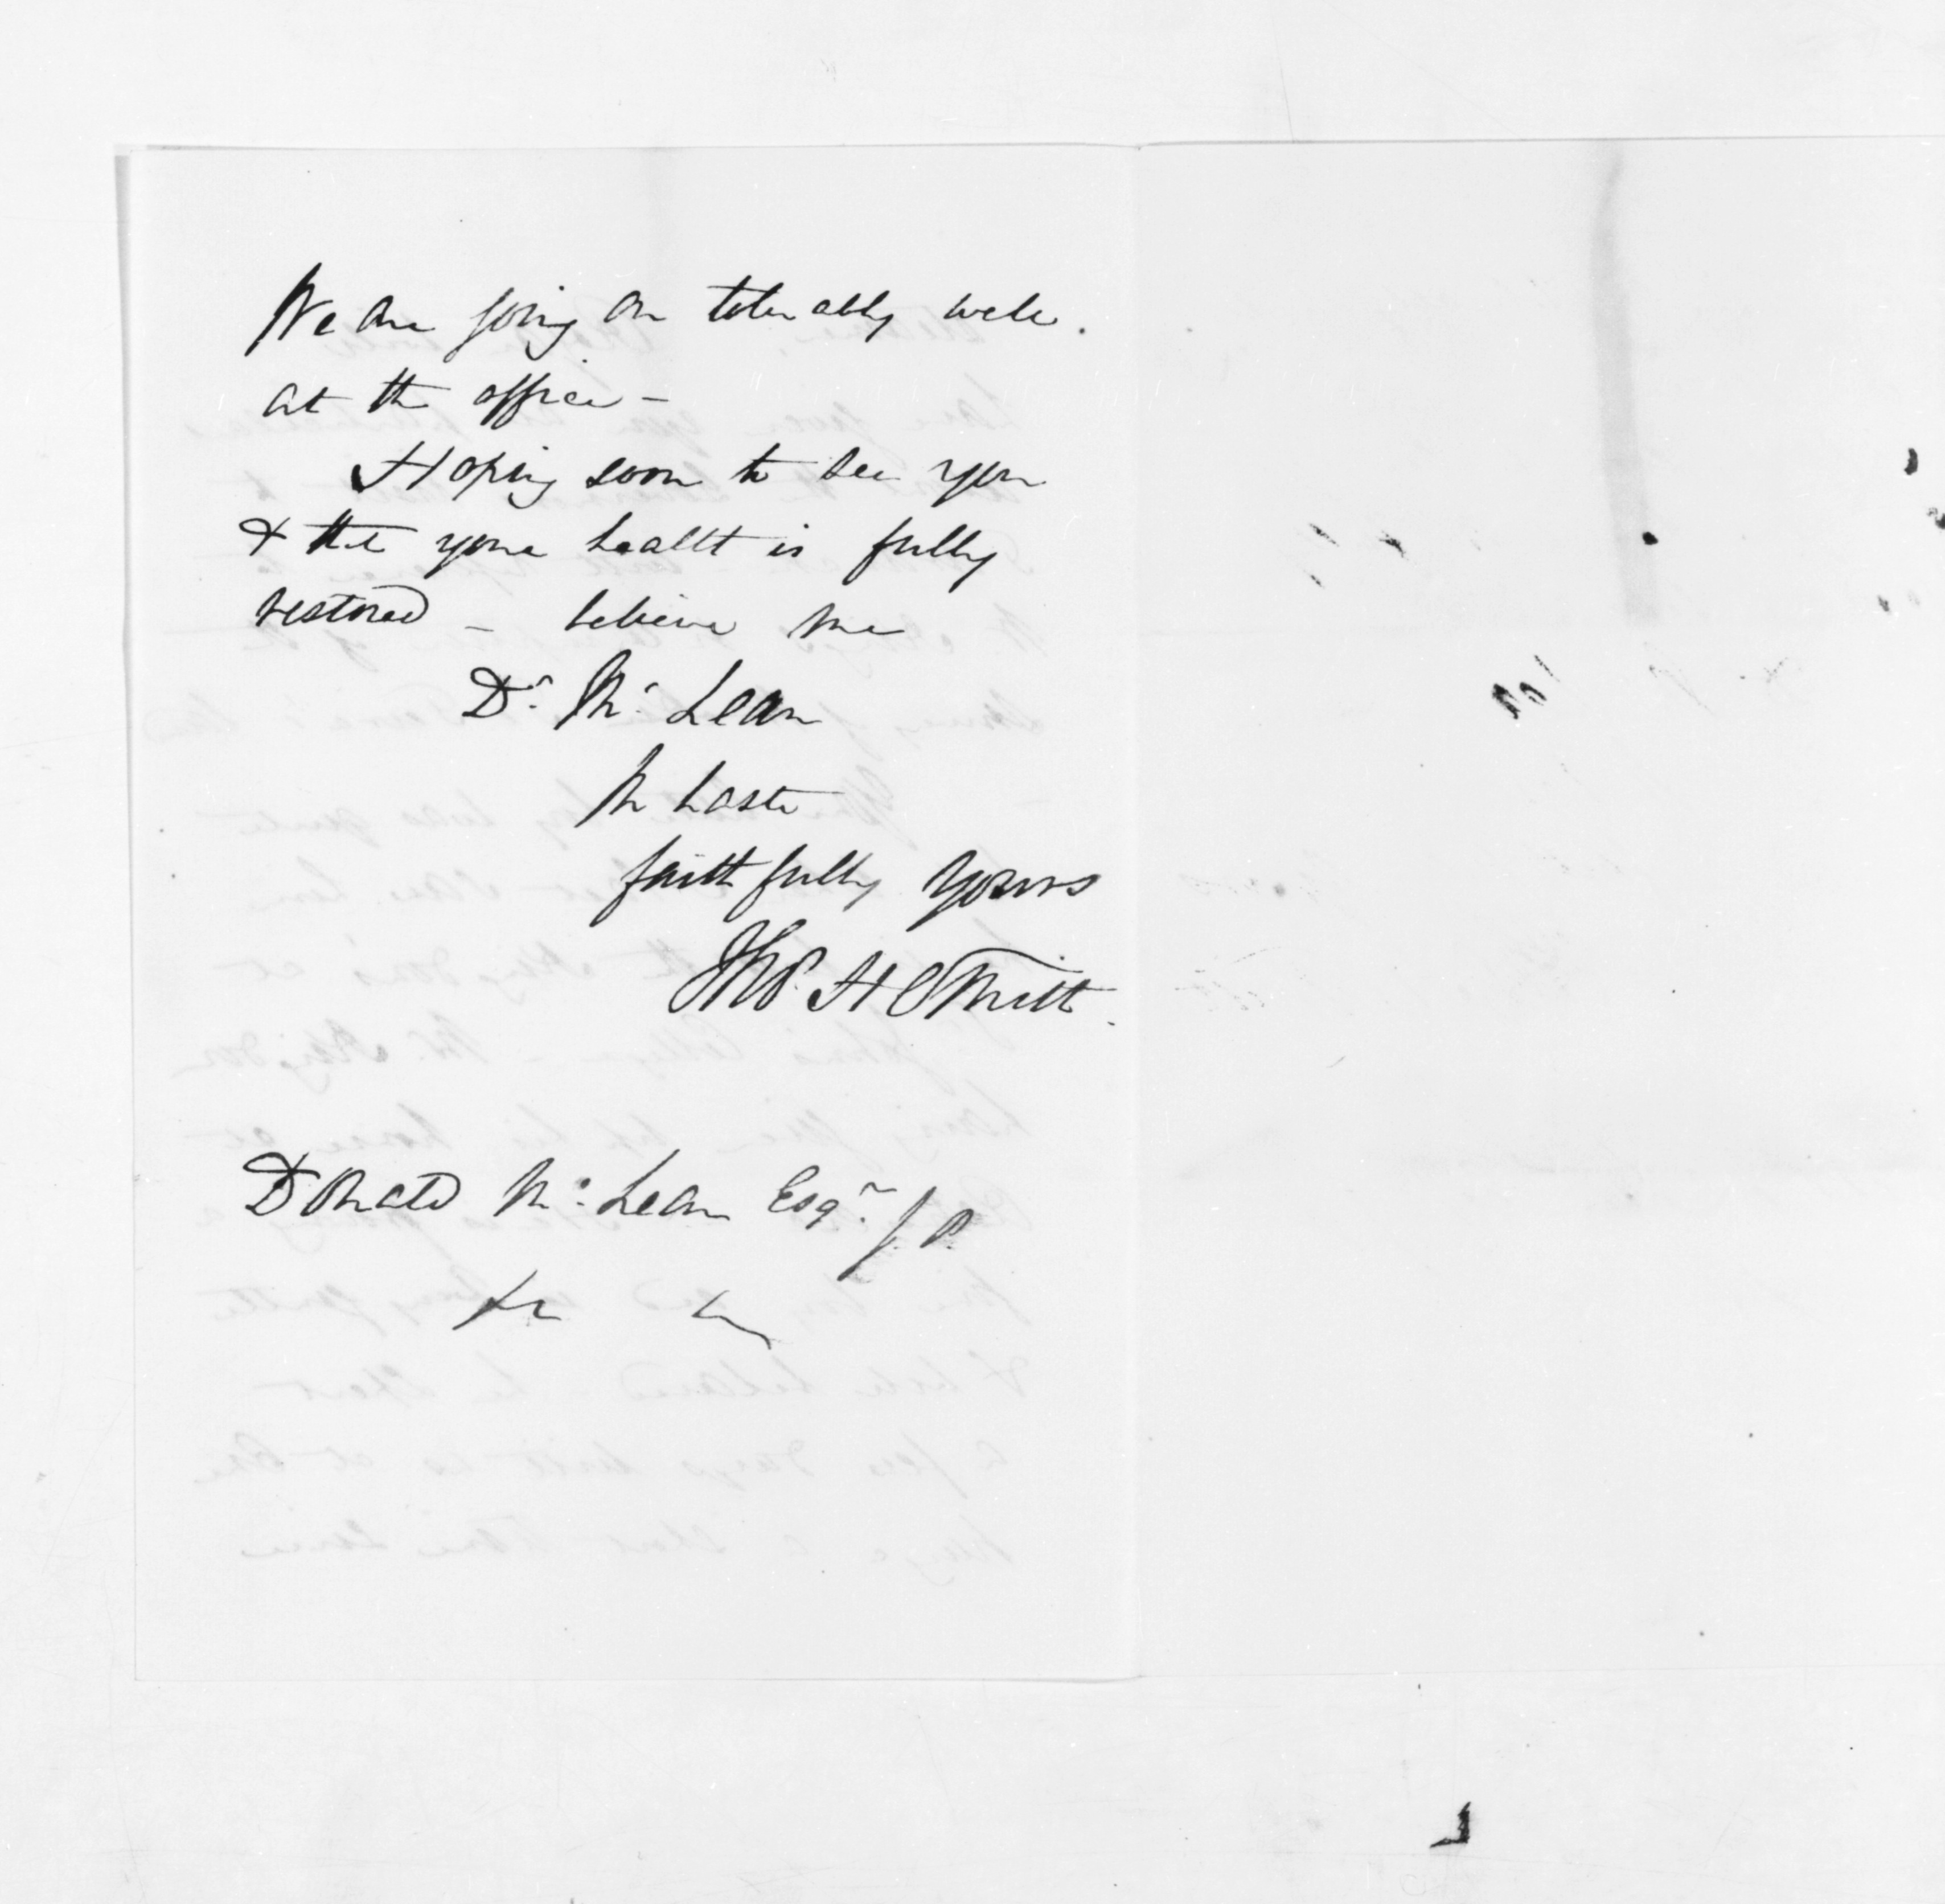 We are going on tolerably well.
at the office -
Hoping soon to see you
& that your health is fully
restored - believe me
Dr. Mc Lean
In haste
faithfully Yours
Thos. H Smith.
Donald Mc. Lean Esqr. J. P.
&c &c